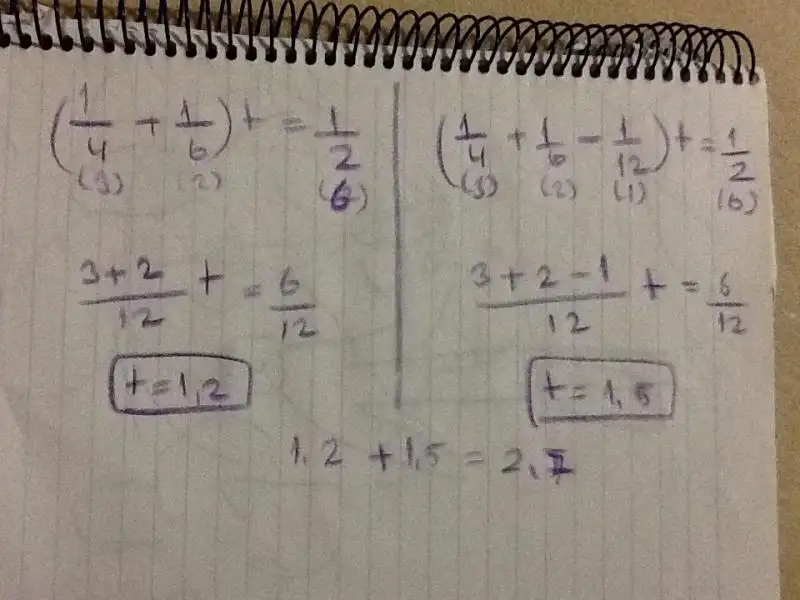 (1/4 + 1/6) t = 1/2
(3) (2) (6)
3+2/12 t = 6/12
t = 1,2
(1/4 + 1/6 - 1/12) t = 1/2
(3) (2) (1) (6)
3+2-1/12 t = 6/12
t = 1,5
1,2 + 1,5 = 2,7